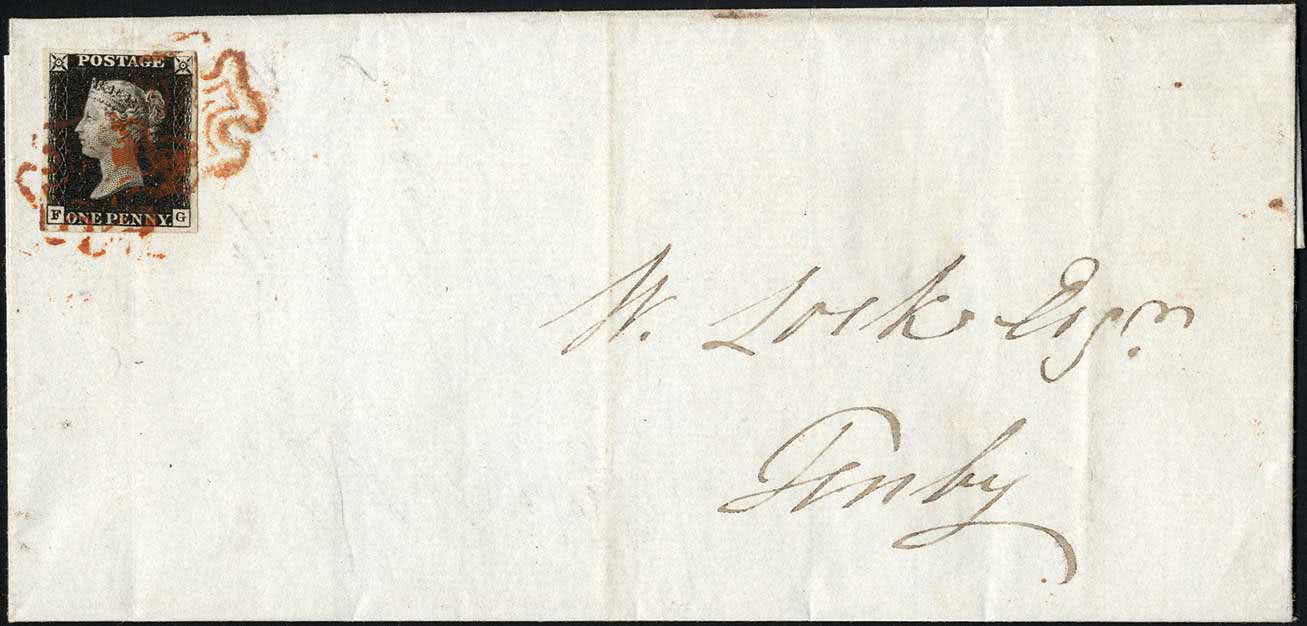 POSTAGE
F ONE PENNY. G
W. Lock Esqr.
Tenby